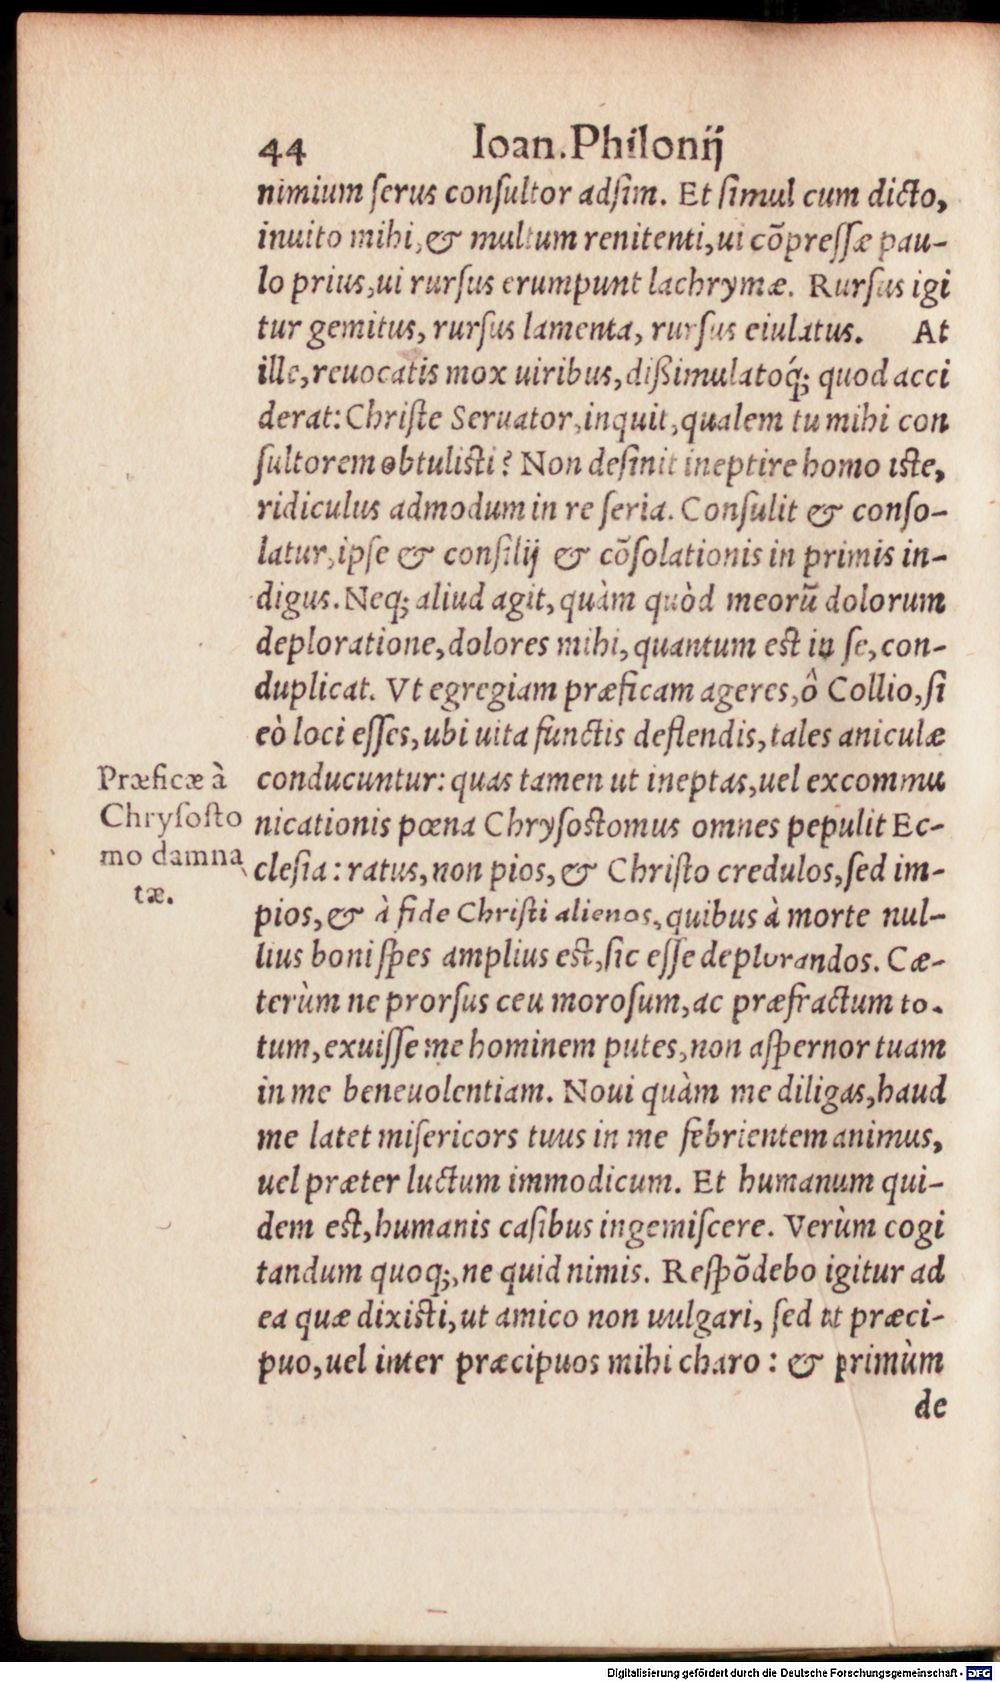 44 Ioan. Philonij
nimium ſerus conſultor adſim. Et ſimul cum dicto,
inuito mihi, & multum renitenti, ui cõpreſſæ pau-
lo prius, ui rurſus erumpunt lachrymæ. Rurſus igi
tur gemitus, rurſus lamenta, rurſus eiulatus. At
ille, reuocatis mox uiribus, dißimulatoq́; quod acci
derat: Chriſte Seruator, inquit, qualem tu mihi con
ſultorem obtuliſti? Non deſinit ineptire homo iſte,
ridiculus admodum in re ſeria. Conſulit & conſo-
latur, ipſe & conſilij & cõſolationis in primis in-
digus. Neq; aliud agit, quàm quòd meorũ dolorum
deploratione, dolores mihi, quantum eſt in ſe, con-
duplicat. Vt egregiam præficam ageres, ô Collio, ſi
eò loci eſſes, ubi uita functis deflendis, tales aniculæ
conducuntur: quas tamen ut ineptas, uel excommu
nicationis pœna Chryſoſtomus omnes pepulit Ec-
cleſia: ratus, non pios, & Chriſto credulos, ſed im-
pios, & à fide Chriſti alienos, quibus à morte nul-
lius boni ſpes amplius eſt, ſic eſſe deplorandos. Cæ-
terùm ne prorſus ceu moroſum, ac præfractum to-
tum, exuiſſe me hominem putes, non aſpernor tuam
in me beneuolentiam. Noui quàm me diligas, haud
me latet miſericors tuus in me febrientem animus,
uel præter luctum immodicum. Et humanum qui-
dem eſt, humanis caſibus ingemiſcere. Verùm cogi
tandum quoq;, ne quid nimis. Reſpõdebo igitur ad
ea quæ dixiſti, ut amico non uulgari, ſed ut præci-
puo, uel inter præcipuos mihi charo: & primùm
de
Præficæ à
Chryſoſto
mo damna
tæ.
Digitalisierung gefördert durch die Deutsche Forschungsgemeinschaft - DFG